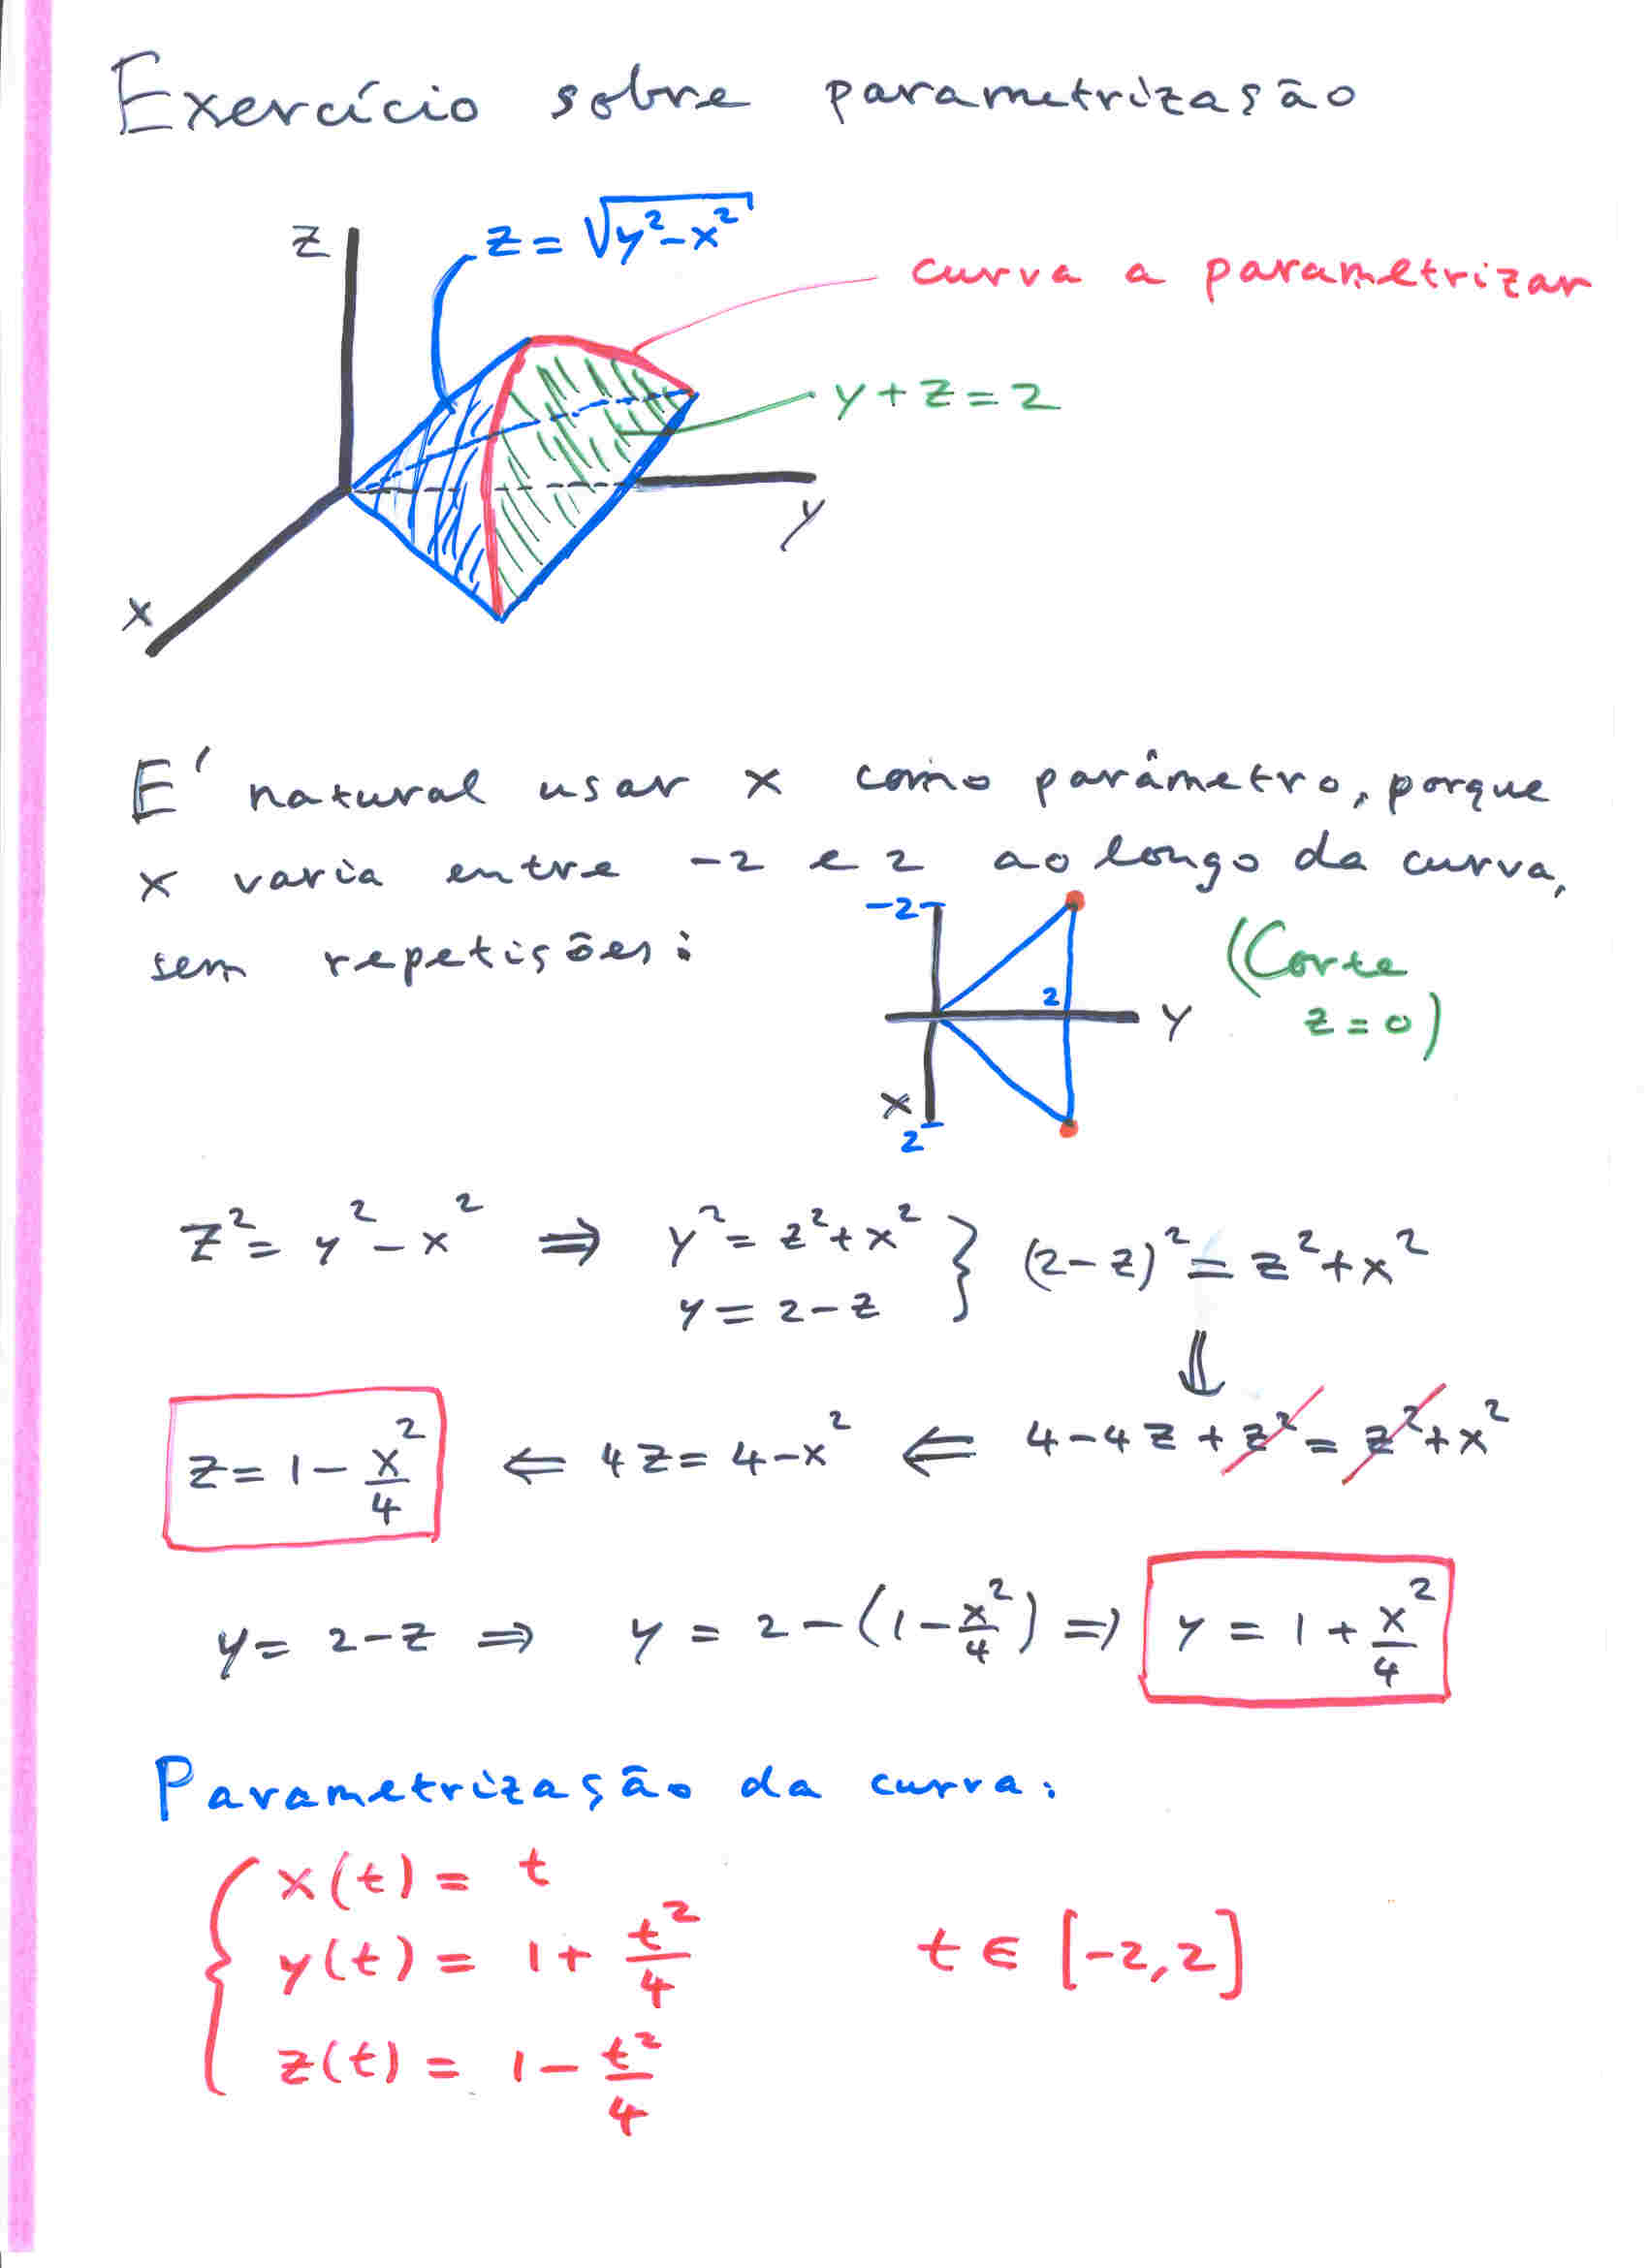 Exercício sobre parametrização
z
z = √(y²-x²)
curva a parametrizar
y + z = 2
y
x
E' natural usar x como parâmetro, porque
x varia entre -2 e 2 ao longo da curva,
sem repetições:
-2
2
y
(Corte
z = 0)
x
2
z² = y² - x² ⇒ y² = z² + x² } (2-z)² = z² + x²
y = 2 - z
⇓
z = 1 - x²/4 ⇐ 4z = 4 - x² ⇐ 4 - 4z + z² = z² + x²
y = 2 - z ⇒ y = 2 - (1 - x²/4) ⇒ y = 1 + x²/4
Parametrização da curva:
{ x(t) = t
y(t) = 1 + t²/4 t ∈ [-2, 2]
z(t) = 1 - t²/4